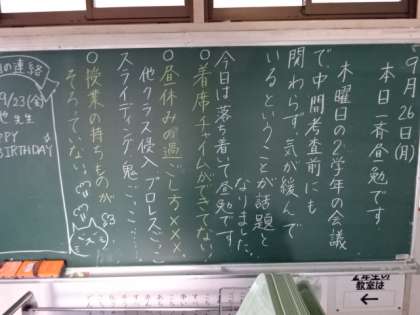 9月26日(月)
本日一斉昼勉です
木曜日の2学年の会議
で、中間考査前にも
関わらず、気が緩んで
いるということが話題と
なりました。
今日は落ち着いて昼勉です。
○着席チャイムができてない
○昼休みの過ごし方×××
他クラス侵入、プロレスごっこ
スライディング鬼ごっこ……
○授業の持ちものが
そろっていない
の連絡
9/23(金)
先生
PPY
BIRTHDAY
2年生の
教室は
←